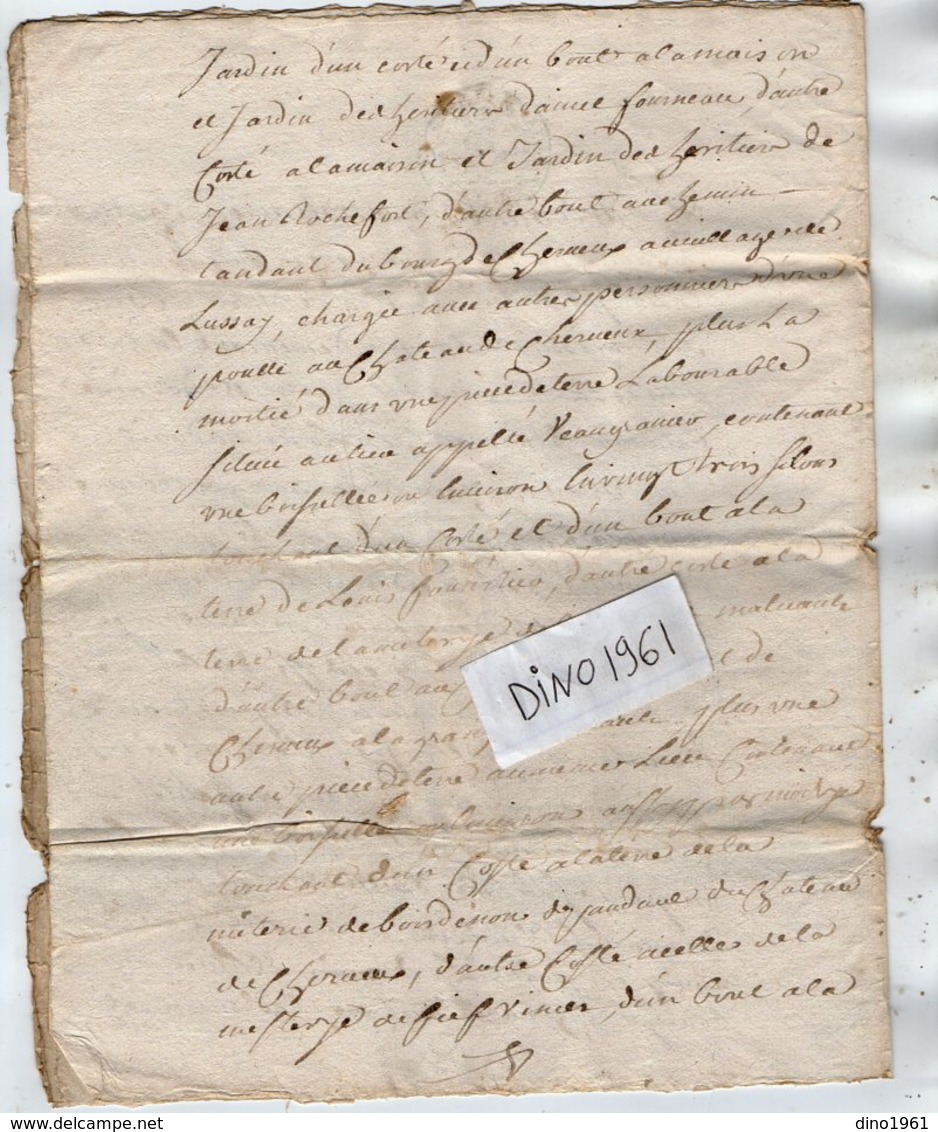 Jardin d'un costé et d'un bout a la maison
et Jardin des heritiers daniel fourneau, d'autre
Costé a la maison et Jardin des heritiers de
Jean Rochefort, d'autre bout au chemin
tandant du bourg de Cherveux au village de
Lussay, chargée avec autres personniers d'une
poulle au Chateau de Cherveux, plus La
moitié dans une piece de terre Labourable
située au lieu appellé contenant
une boisellée ou environ vingt trois sillons
touchant d'un Costé et d'un bout a la
terre de Louis d'autre costé a la
terre de la
d'autre bout au de
Cherveux a la plus une
autre piece de terre au mesme Lieu Contenant
une boisellée ou environ aussy par moityé
touchant d'un Costé a la terre de la
méterie de boisdenon dependant du Chateau
de Cherveux, d'autre Costé a celle de la
de fief d'un bout a la
DINO 1961
dino1961